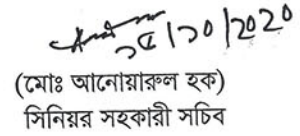 ২৫/১০/2020
(মোঃ আনোয়ারুল হক)
সিনিয়র সহকারী সচিব